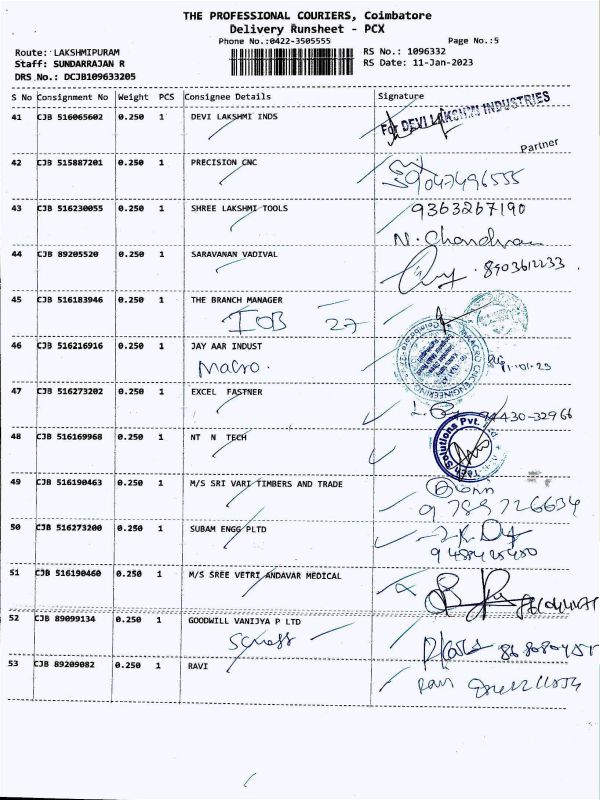 THE PROFESSIONAL COURIERS, Coimbatore
Delivery Runsheet - PCX
Phone No.:0422-3505555 Page No.:5
Route: LAKSHMIPURAM RS No.: 1096332
Staff: SUNDARRAJAN R RS Date: 11-Jan-2023
DRS No.: DCJB109633205
S No Consignment No Weight PCS Consignee Details Signature
41 CJB 516065602 0.250 1 DEVI LAKSHMI INDS
For DEVI LAKSHMI INDUSTRIES
Partner
42 CJB 515887201 0.250 1 PRECISION CNC
9047496555
43 CJB 516230055 0.250 1 SHREE LAKSHMI TOOLS 9363267190
N. Chandran
44 CJB 89205520 0.250 1 SARAVANAN VADIVAL
8903612233
45 CJB 516183946 0.250 1 THE BRANCH MANAGER
IOB 27
46 CJB 516216916 0.250 1 JAY AAR INDUST
Macro. 11-01-23
47 CJB 516273202 0.250 1 EXCEL FASTNER
94430-32966
48 CJB 516169968 0.250 1 NT N TECH
Tech Solutions Pvt. Ltd
49 CJB 516190463 0.250 1 M/S SRI VARI TIMBERS AND TRADE
9789726634
50 CJB 516273200 0.250 1 SUBAM ENGG PLTD
51 CJB 516190460 0.250 1 M/S SREE VETRI ANDAVAR MEDICAL
52 CJB 89099134 0.250 1 GOODWILL VANIJYA P LTD
53 CJB 89209082 0.250 1 RAVI
Ravi